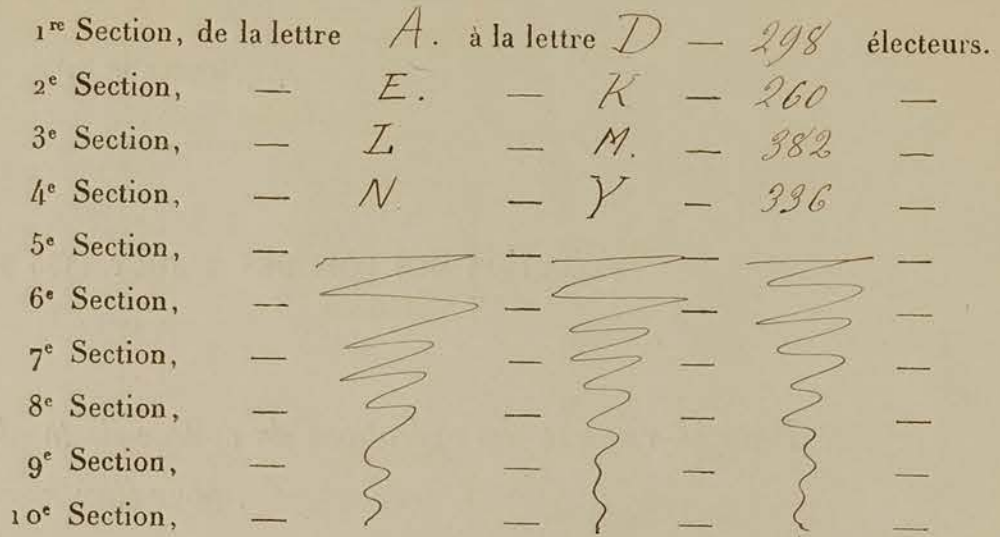 1re Section, de la lettre A. à la lettre D — 298 électeurs.
2e Section, — E. — K — 260 —
3e Section, — L — M. — 382 —
4e Section, — N. — Y — 336 —
5e Section, — — — —
6e Section, — — — —
7e Section, — — — —
8e Section, — — — —
9e Section, — — — —
10e Section, — — — —